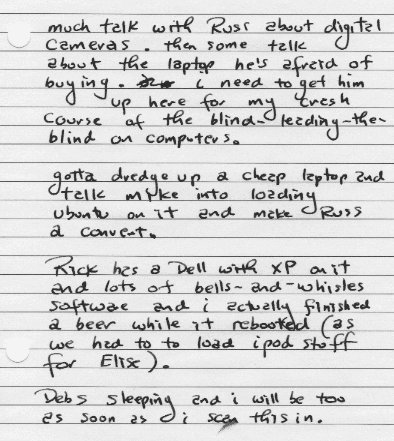 much talk with Russ about digital
cameras. then some talk
about the laptop he's afraid of
buying. i need to get him
up here for my crash
course of the blind-leading-the-
blind on computers.
gotta dredge up a cheap laptop and
talk mike into loading
ubuntu on it and make Russ
a convert.
Rick has a Dell with XP on it
and lots of bells-and-whistles
software and i actually finished
a beer while it rebooted (as
we had to to load ipod stuff
for Elise).
Deb's sleeping and i will be too
as soon as i scan this in.